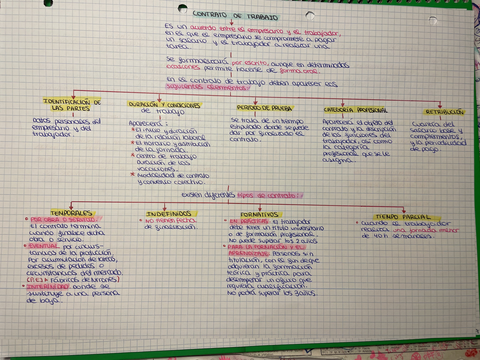 CONTRATO DE TRABAJO
Es un acuerdo entre el empresario y el trabajador,
en el que el empresario se compromete a pagar
un salario y el trabajador a realizar una
tarea.
se formalizará por escrito, aunque en determinadas
ocasiones permite hacerse de forma oral.
en el contrato de trabajo deben aparecer los
siguientes elementos:
IDENTIFICACIÓN DE
LAS PARTES
datos personales del
empresario y del
trabajador.
DURACIÓN Y CONDICIONES
de trabajo
Aparecerá:
* El inicio y duración
de la relación laboral
* El horario y
de la jornada.
* Centro de trabajo
duración de las
vacaciones.
* Modalidad de contrato
y convenio colectivo.
PERIODO DE PRUEBA
se trata de un tiempo
estipulado donde se puede
dar por finalizado el
contrato.
CATEGORÍA PROFESIONAL
Aparecerá el objeto del
contrato y la descripción
de las funciones del
trabajador, así como
la categoría
profesional que se le
asigna.
RETRIBUCIÓN
Cuantía del
salario base y
complementos,
y la periodicidad
de pago
Existen diferentes tipos de contrato:
TEMPORALES
* POR OBRA O SERVICIO:
El contrato termina
cuando finalice dicha
obra o servicio.
* EVENTUAL: por circuns-
tancias de la producción
Por acumulación de tareas,
excesos de pedidos o
circunstancias del mercado
(P.EJ: )
* INTERINIDAD: donde se
sustituye a una persona
de baja.
INDEFINIDOS
* No tienen fecha
de finalización.
FORMATIVOS
* EN PRÁCTICAS: El trabajador
debe tener un título universitario
o de formación profesional.
No puede superar los 2 años
* PARA LA FORMACIÓN Y EL
APRENDIZAJE: Personas sin
titulación, con el fin de que
adquieran la formación
teórica y práctica para
desempeñar un oficio que
requiera cualificación.
No podrá superar los 3 años.
TIEMPO PARCIAL
* cuando el trabajador
realiza una jornada menor
de 40 h semanales.